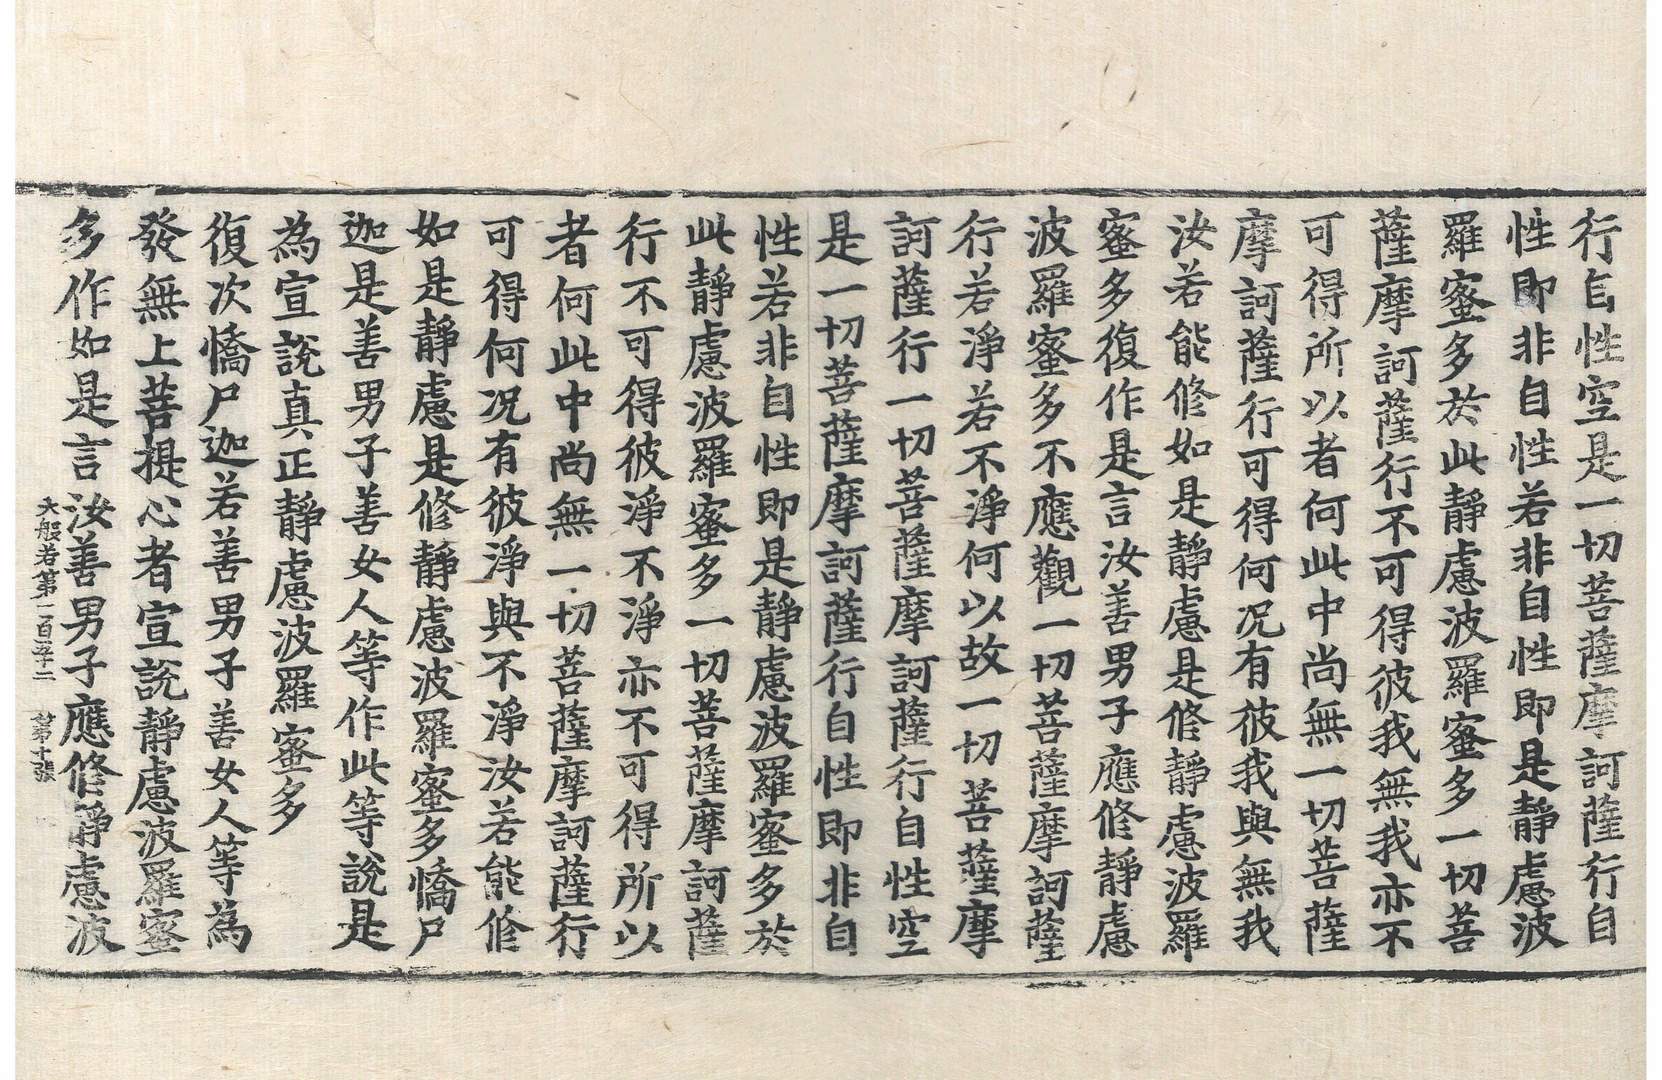 行自性空是一切菩薩摩訶薩行自
性即非自性若非自性即是靜慮波
羅蜜多於此靜慮波羅蜜多一切菩
薩摩訶薩行不可得彼我無我亦不
可得所以者何此中尚無一切菩薩
摩訶薩行可得何况有彼我與無我
汝若能修如是靜慮是修靜慮波羅
蜜多復作是言汝善男子應修靜慮
波羅蜜多不應觀一切菩薩摩訶薩
行若淨若不淨何以故一切菩薩摩
訶薩行一切菩薩摩訶薩行自性空
是一切菩薩摩訶薩行自性即非自
性若非自性即是靜慮波羅蜜多於
此靜慮波羅蜜多一切菩薩摩訶薩
行不可得彼淨不淨亦不可得所以
者何此中尚無一切菩薩摩訶薩行
可得何况有彼淨與不淨汝若能修
如是靜慮是修靜慮波羅蜜多憍尸
迦是善男子善女人等作此等說是
為宣說真正靜慮波羅蜜多
復次憍尸迦若善男子善女人等為
發無上菩提心者宣說靜慮波羅蜜
多作如是言汝善男子應修靜慮波
大般若第一百五十二 第十張